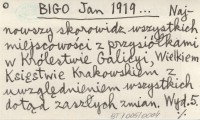 BIGO Jan 1919... Naj-
nowszy skorowidz wszystkich
miejscowości z przysiółkami
w Królestwie Galicyi, Wielkiem
Księstwie Krakowskiem z
uwzględnieniem wszystkich
dotąd zaszłych zmian. Wyd. 5.